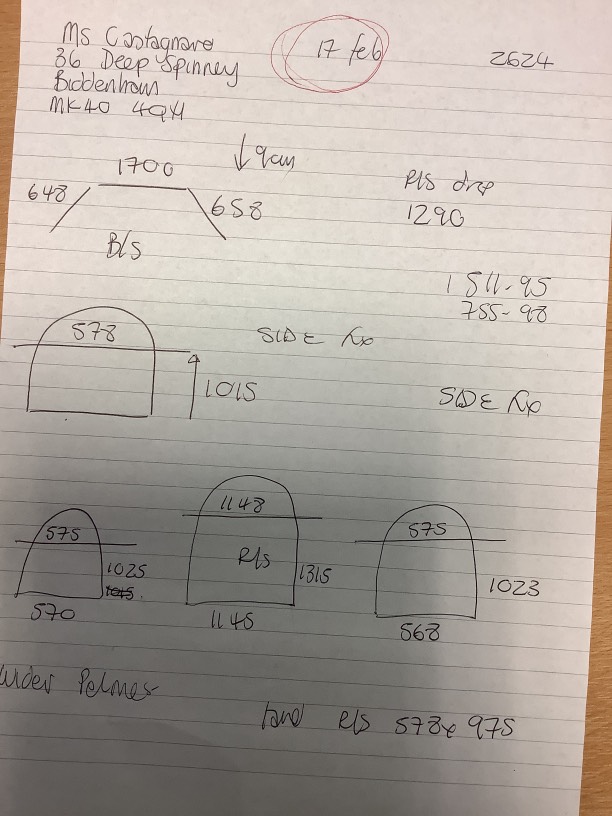 Ms Castagnare
36 Deep Spinney
Biddenham
MK40 4QH
17 feb
2624
1700
↓ 9cm
648
658
B/S
R/S drop
1290
1511-95
755-98
578
SIDE fix
1015
SIDE fix
575
1025
570
1148
R/s
1315
1145
575
1023
568
under Pelmet
R/s 578 x 975